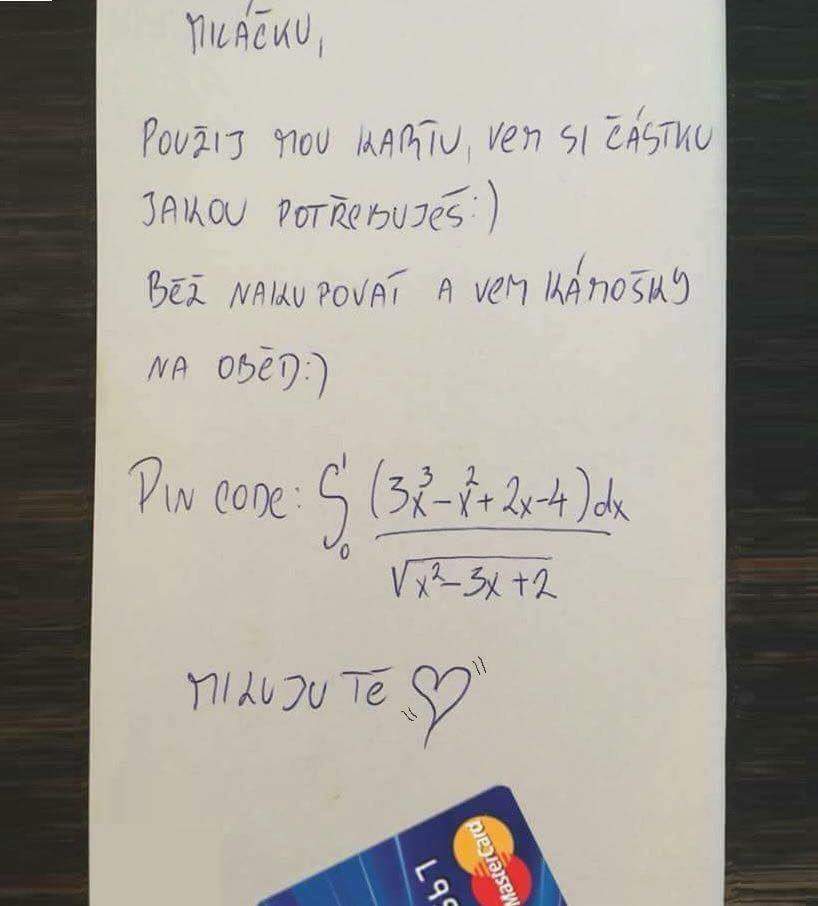 MILÁČKU,
POUŽIJ MOU KARTU, VEM SI ČÁSTKU
JAKOU POTŘEBUJEŠ:)
BĚŽ NAKUPOVAT A VEM KÁMOŠKY
NA OBĚD:)
PIN CODE: ∫₀¹ (3x³-x²+2x-4)dx / √x²-3x+2
MILUJU TĚ ♡
MasterCard